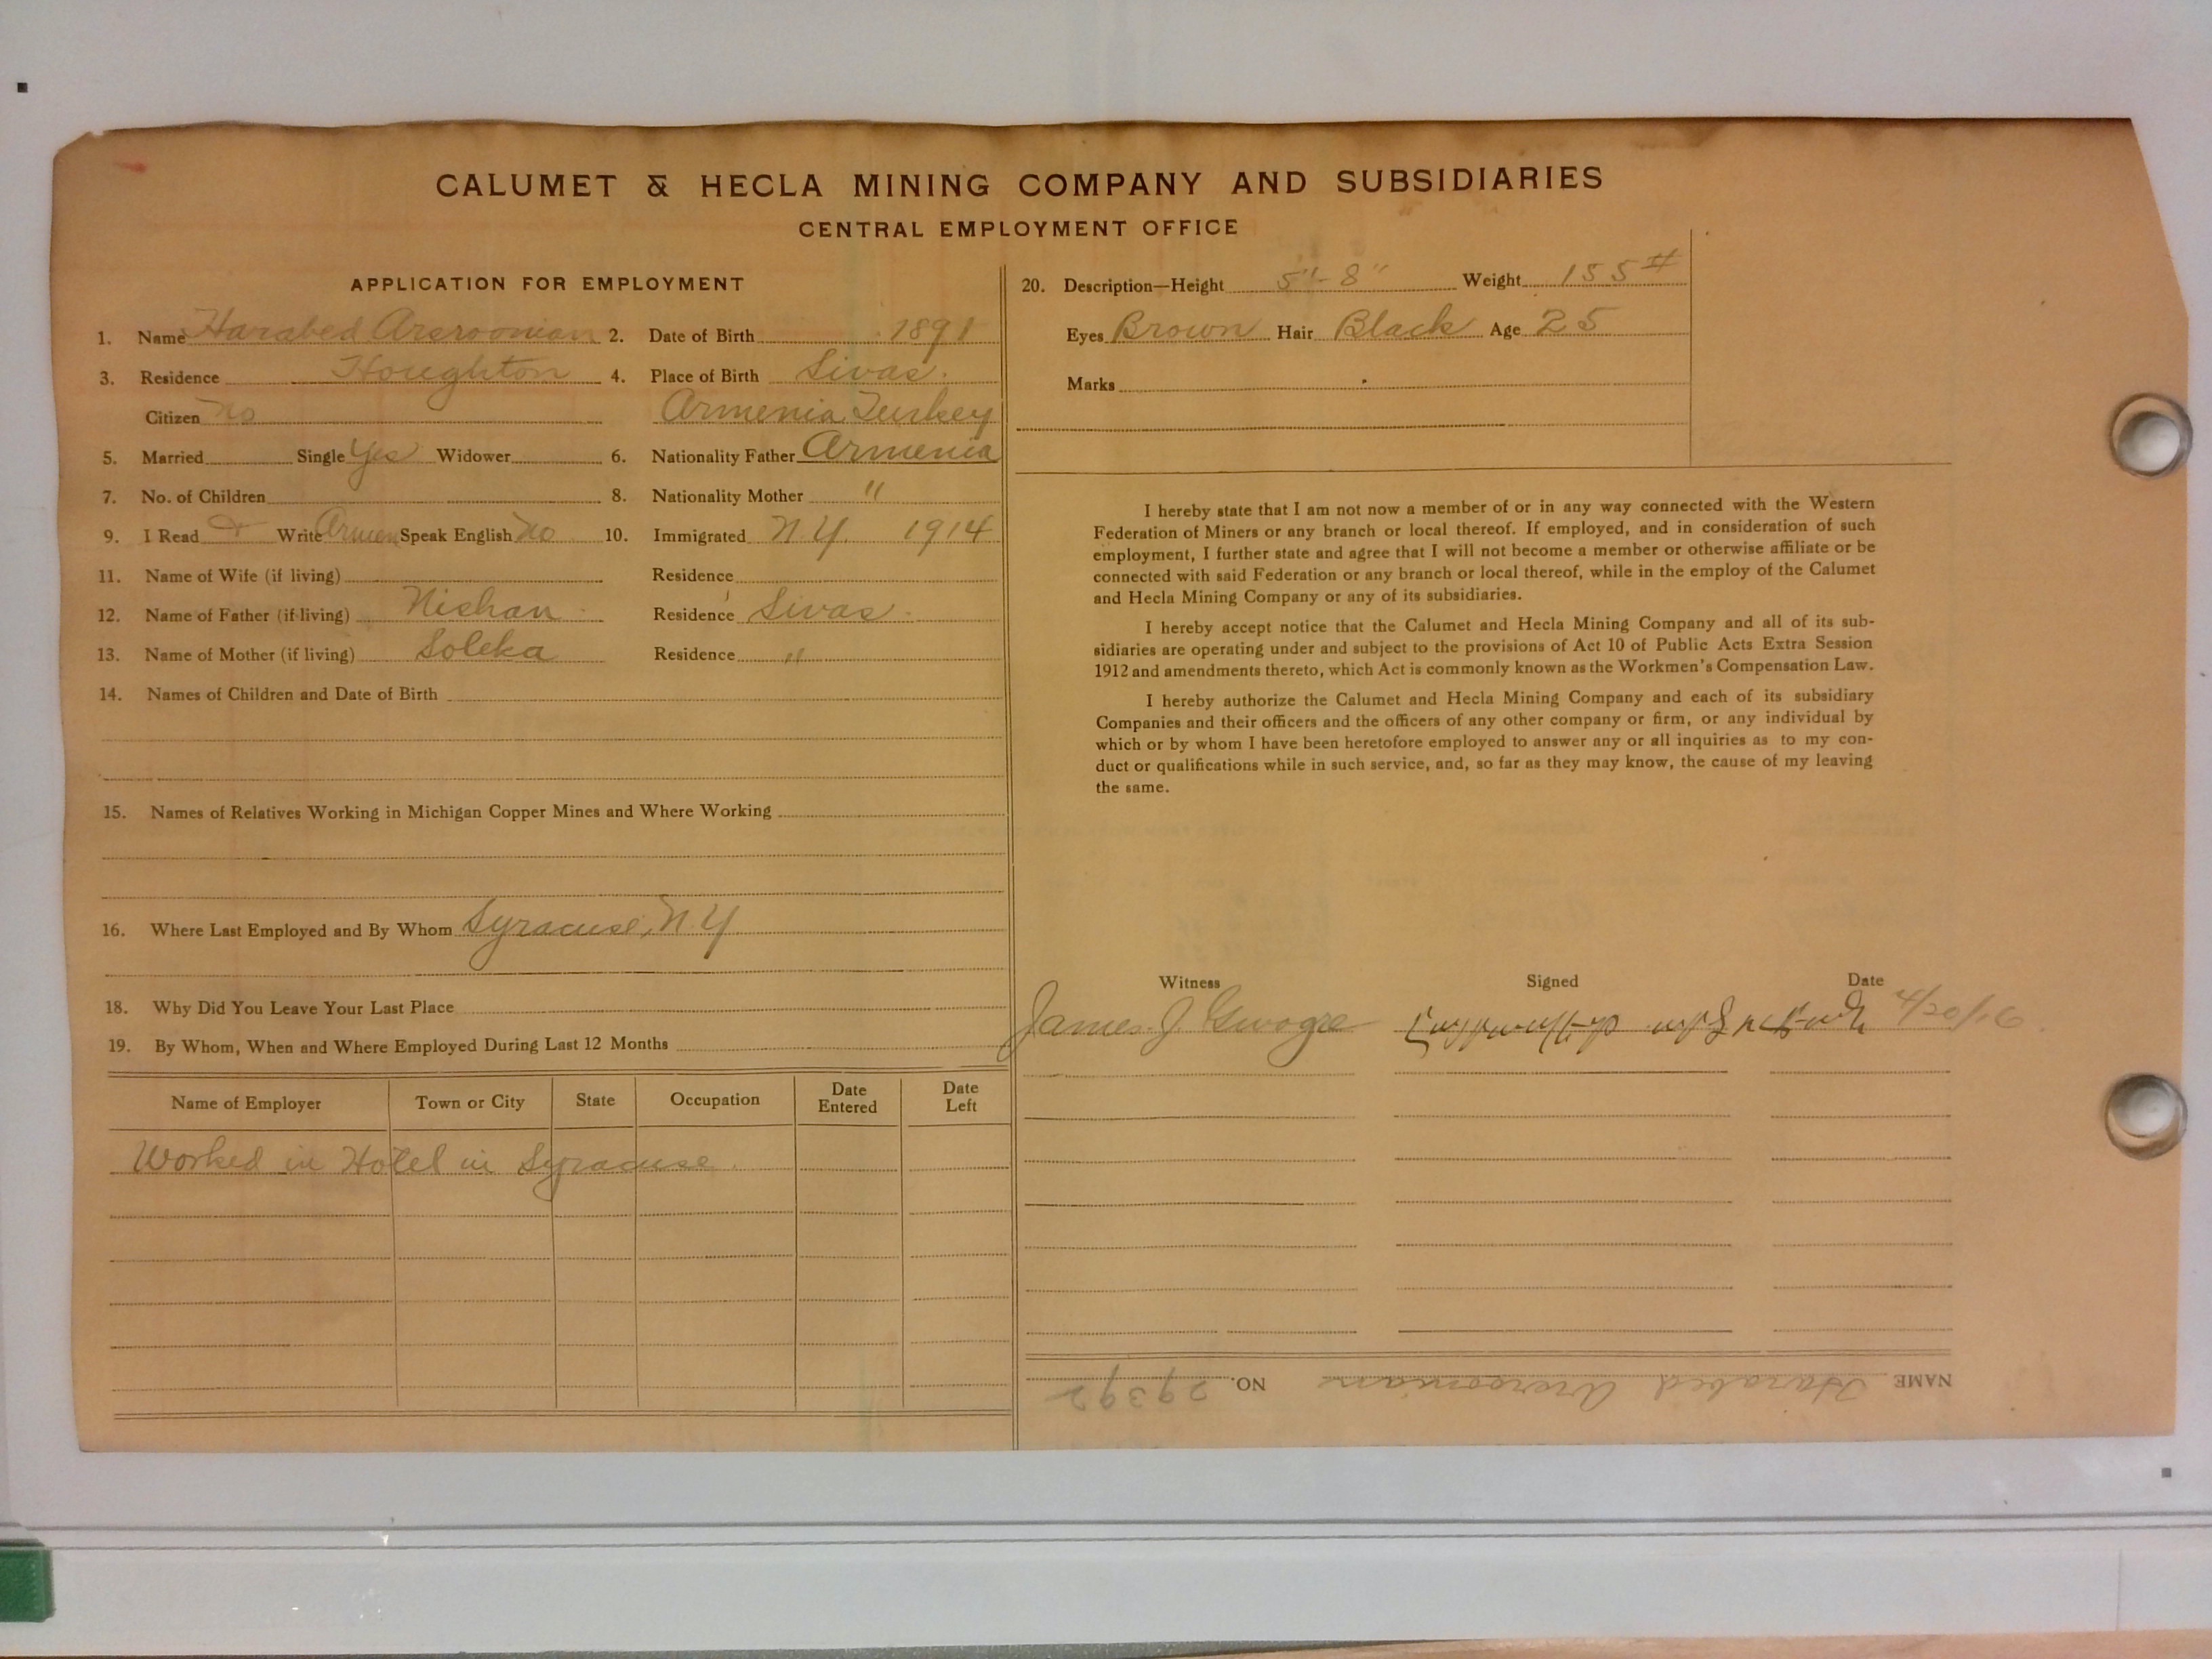 CALUMET & HECLA MINING COMPANY AND SUBSIDIARIES
CENTRAL EMPLOYMENT OFFICE
APPLICATION FOR EMPLOYMENT
1. Name Harabed Arsroonian 2. Date of Birth 1891
3. Residence Houghton 4. Place of Birth Sivas.
Citizen no Armenia Turkey
5. Married Single Yes Widower 6. Nationality Father Armenia
7. No. of Children 8. Nationality Mother "
9. I Read + Write Armen Speak English no 10. Immigrated N.Y. 1914
11. Name of Wife (if living) Residence
12. Name of Father (if living) Nishan Residence Sivas.
13. Name of Mother (if living) Soleka Residence "
14. Names of Children and Date of Birth
15. Names of Relatives Working in Michigan Copper Mines and Where Working
16. Where Last Employed and By Whom Syracuse, N.Y
18. Why Did You Leave Your Last Place
19. By Whom, When and Where Employed During Last 12 Months
Name of Employer Town or City State Occupation Date Entered Date Left
Worked in Hotel in Syracuse.
20. Description—Height 5'-8" Weight 155#
Eyes Brown Hair Black Age 25
Marks
I hereby state that I am not now a member of or in any way connected with the Western
Federation of Miners or any branch or local thereof. If employed, and in consideration of such
employment, I further state and agree that I will not become a member or otherwise affiliate or be
connected with said Federation or any branch or local thereof, while in the employ of the Calumet
and Hecla Mining Company or any of its subsidiaries.
I hereby accept notice that the Calumet and Hecla Mining Company and all of its sub-
sidiaries are operating under and subject to the provisions of Act 10 of Public Acts Extra Session
1912 and amendments thereto, which Act is commonly known as the Workmen's Compensation Law.
I hereby authorize the Calumet and Hecla Mining Company and each of its subsidiary
Companies and their officers and the officers of any other company or firm, or any individual by
which or by whom I have been heretofore employed to answer any or all inquiries as to my con-
duct or qualifications while in such service, and, so far as they may know, the cause of my leaving
the same.
Witness Signed Date
James J. 4/20/16
NAME Harabed Arsroonian NO. 29392